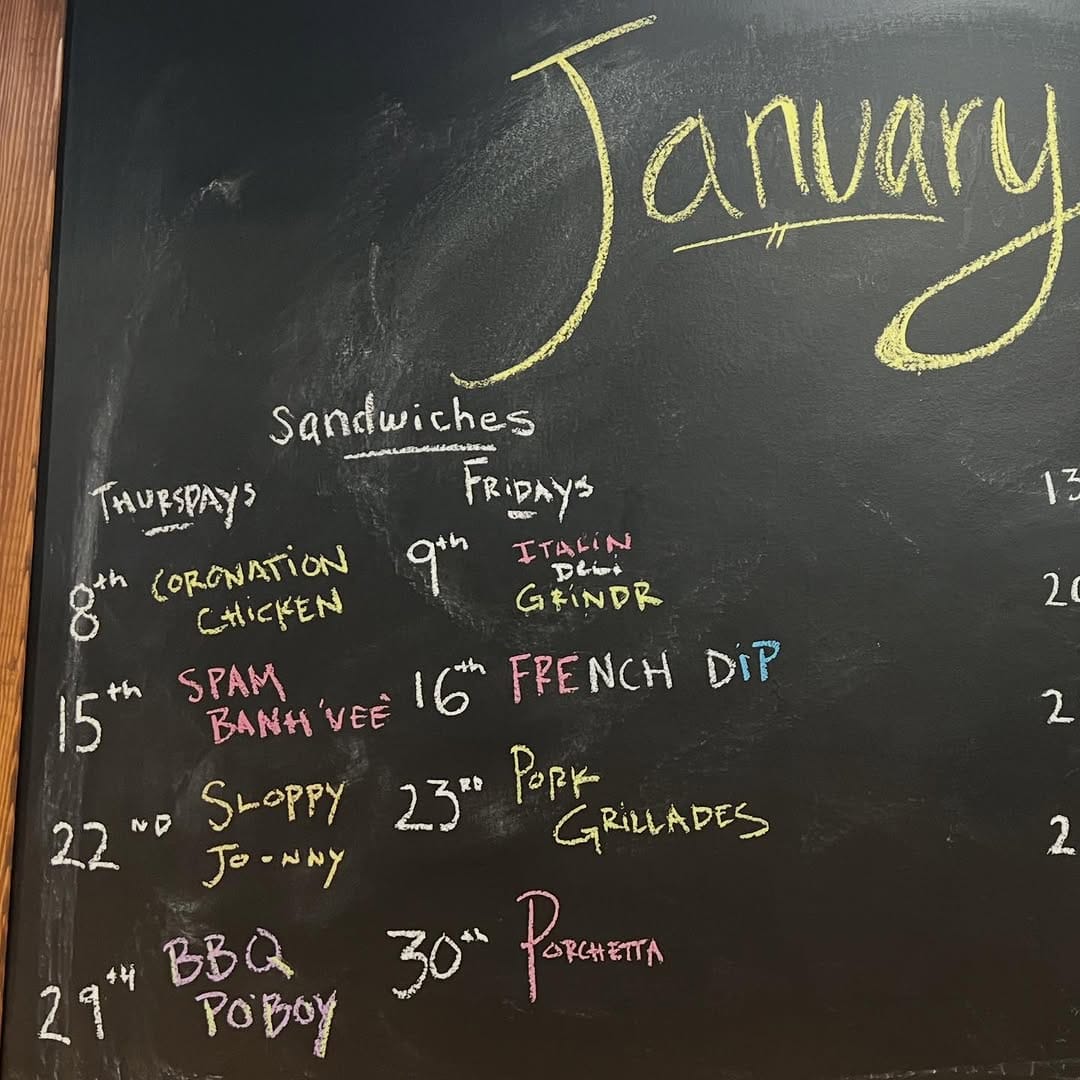 January
Sandwiches
THURSDAYS
FRiDAYS
8th CORONATiON
CHiCKEN
9th ITALIN
DELi
GRiNDR
15th SPAM
BANH 'VEE`
16th FRENCH DiP
22ND SLOPPY
JO-NNY
23RD PORK
GRiLLADES
29TH BBQ
PO'BOY
30th PORCHETTA
13
20
2
2